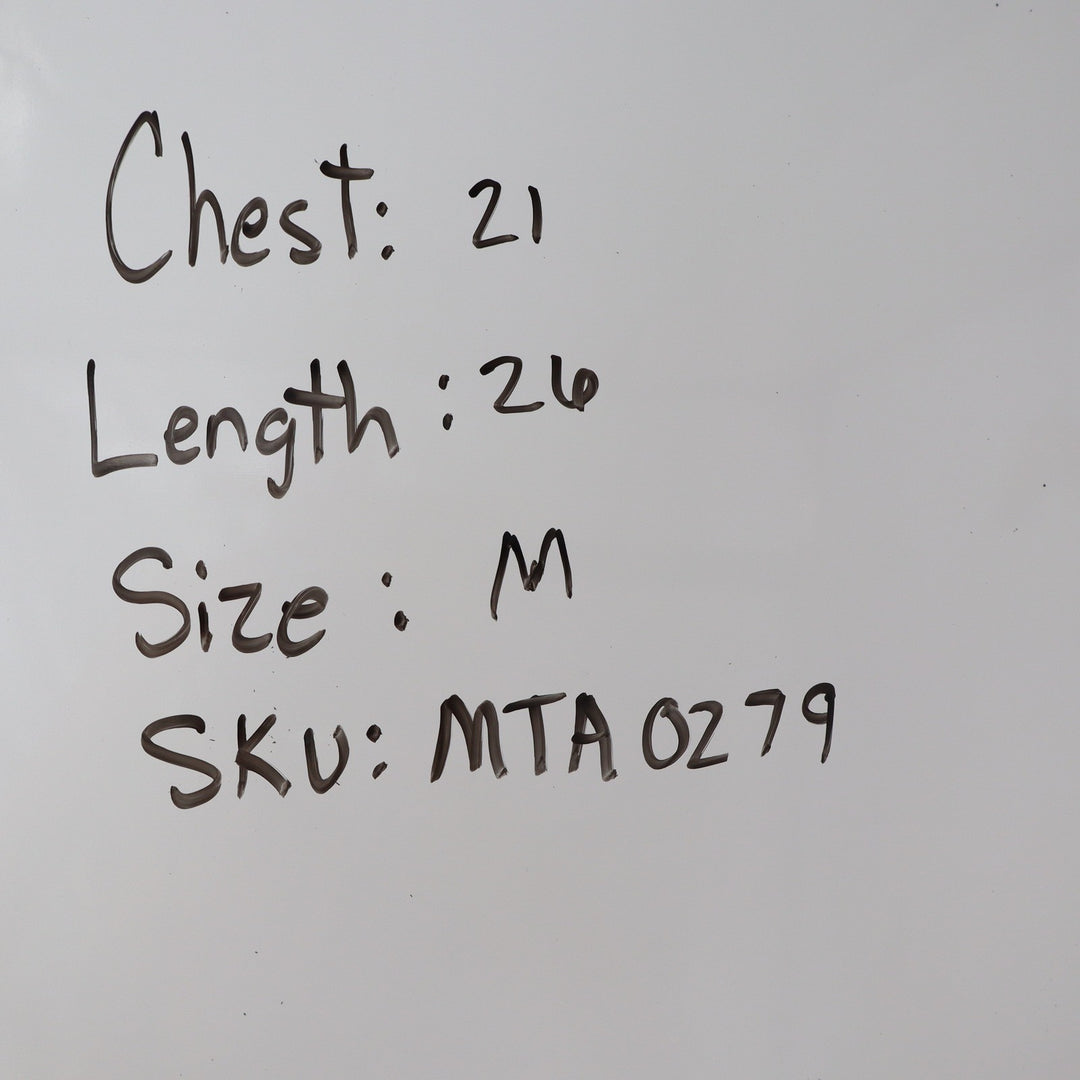 Chest: 21
Length: 26
Size: M
SKU: MTA0279